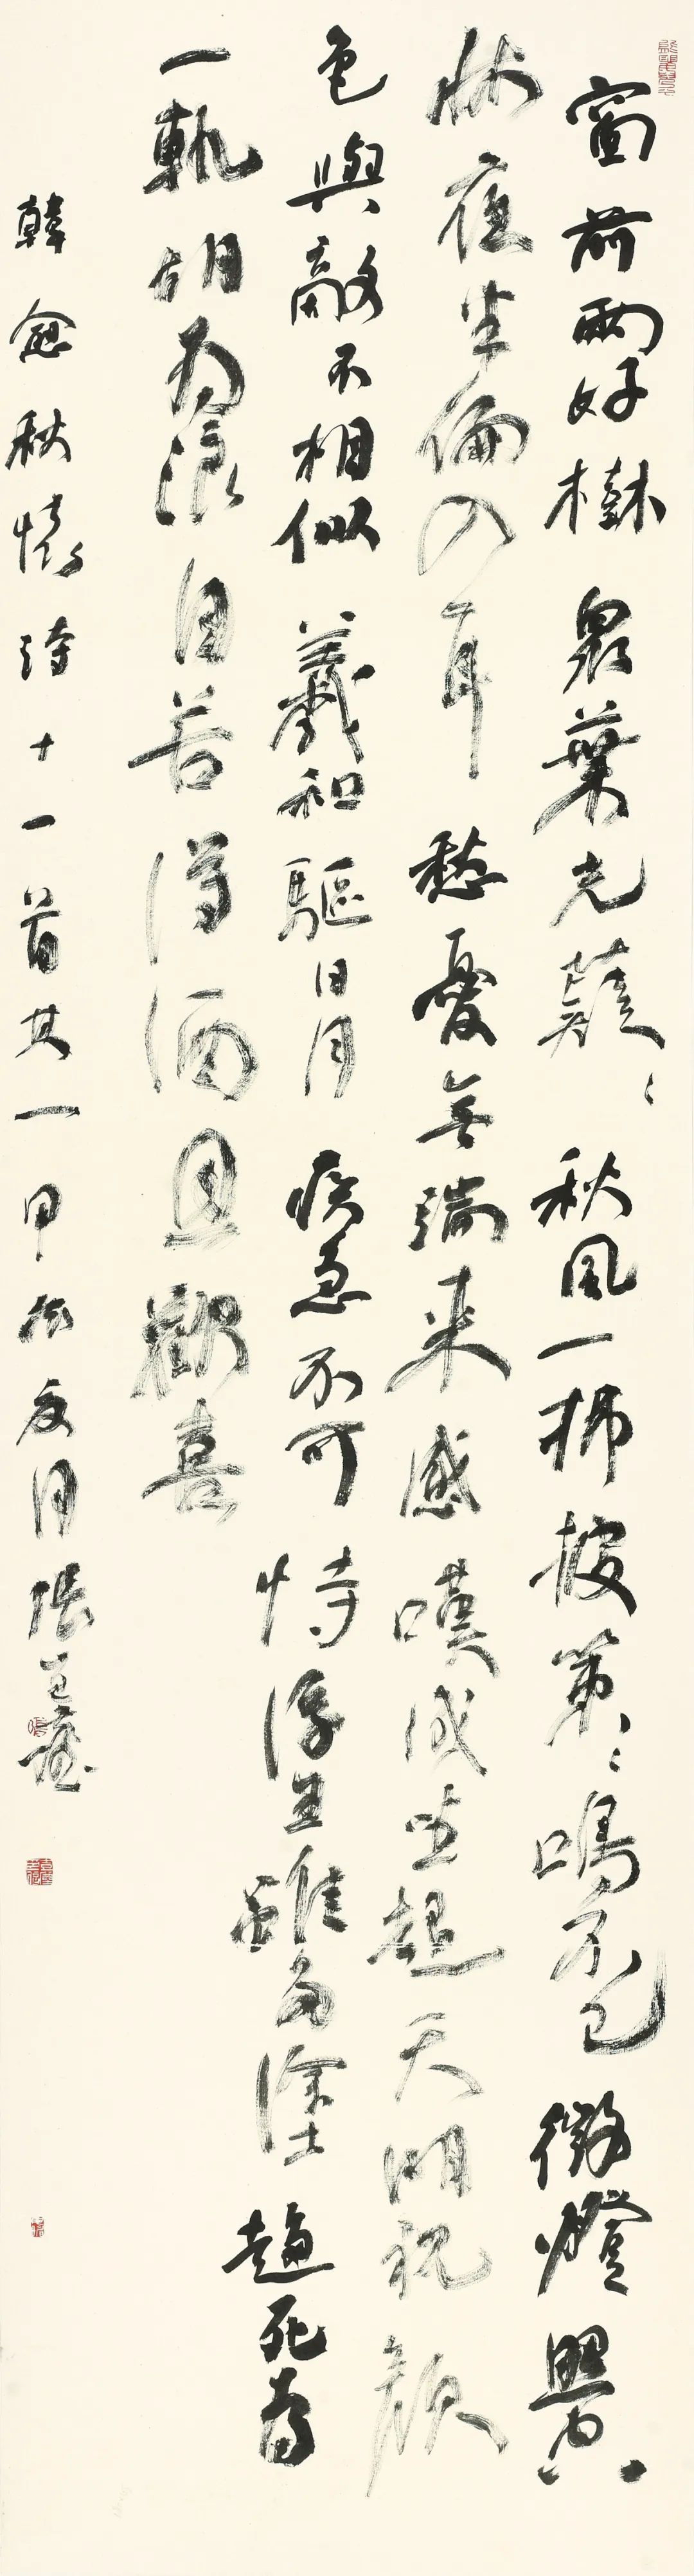 窗前兩好樹眾葉光薿〻秋風一拂披策〻鳴不已微燈照空
牀夜半偏入耳愁憂無端來感嘆成坐起天明視顏
色與故不相似羲和驅日月疾急不可恃浮生雖多塗趨死為
一軌胡為浪自苦得酒且歡喜
韓愈秋懷詩十一首其一甲辰夏月張